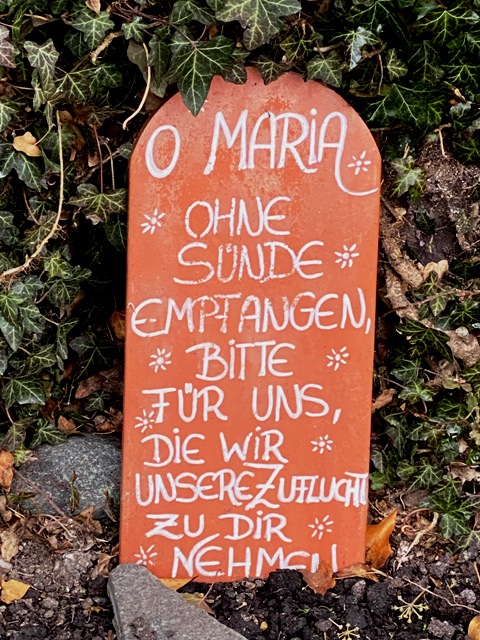 O MARIA
OHNE
SÜNDE
EMPFANGEN,
BITTE
FÜR UNS,
DIE WIR
UNSERE ZUFLUCHT
ZU DIR
NEHMEN!